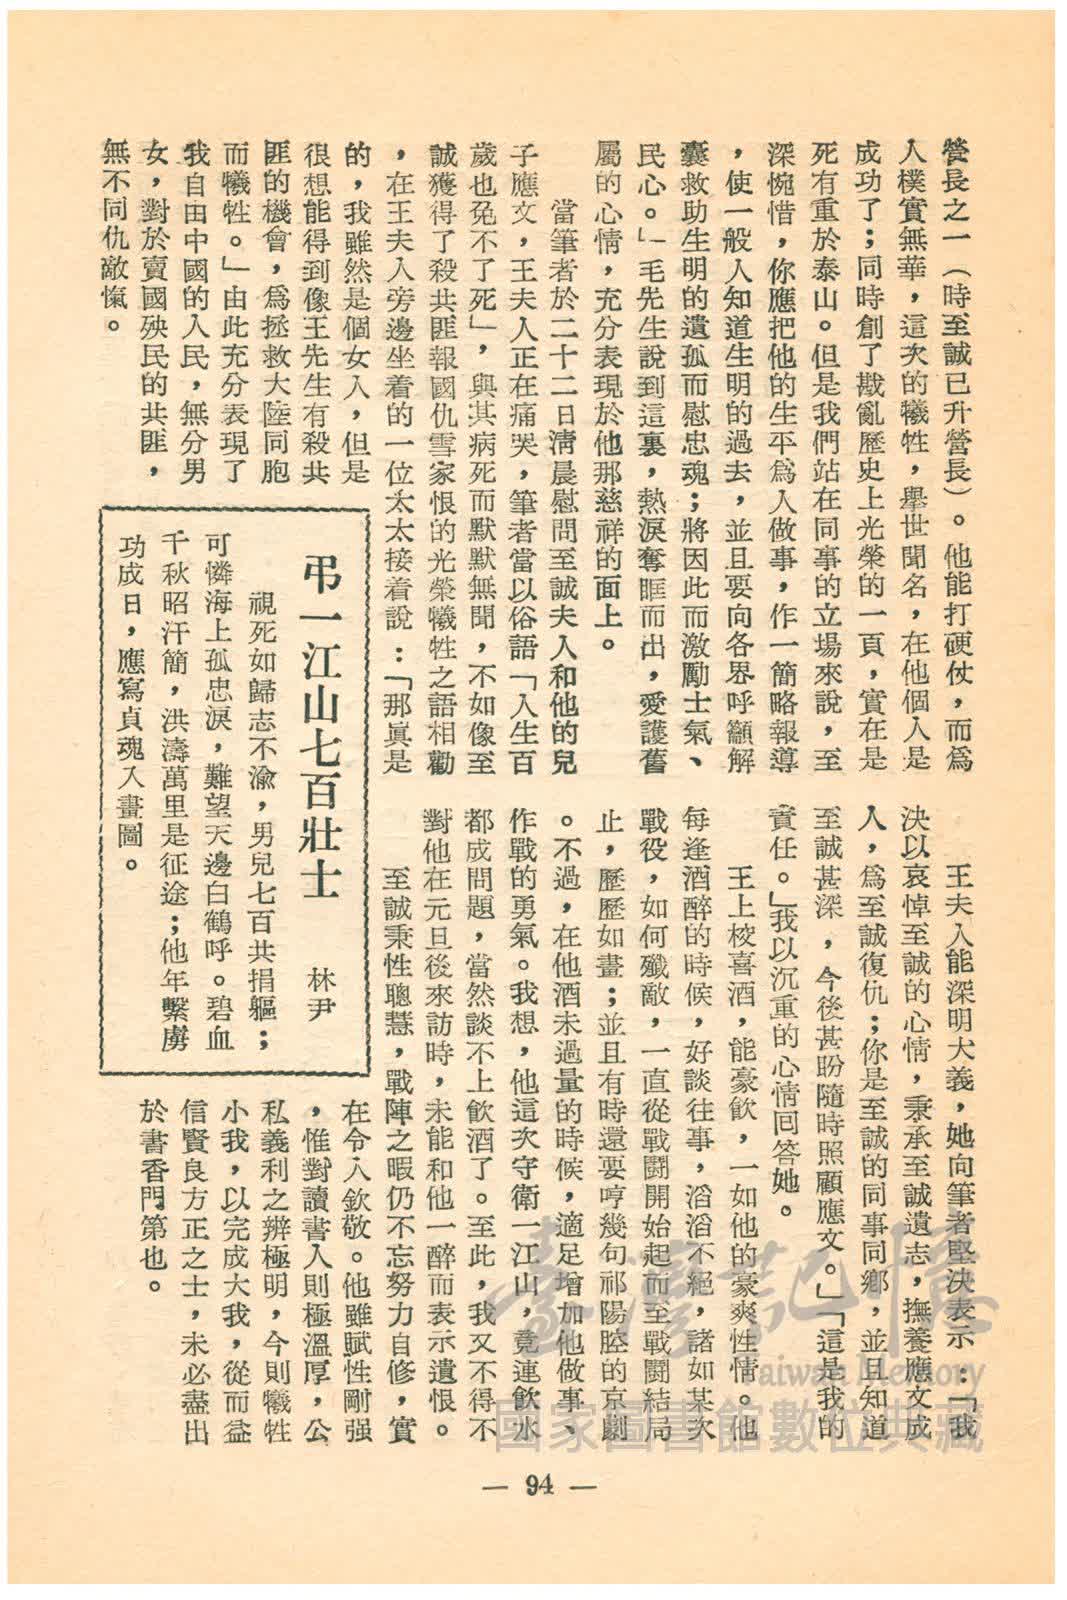 營長之一（時至誠已升營長）。他能打硬仗，而爲
人樸實無華，這次的犧牲，舉世聞名，在他個人是
成功了；同時創了戡亂歷史上光榮的一頁，實在是
死有重於泰山。但是我們站在同事的立場來說，至
深惋惜，你應把他的生平爲人做事，作一簡略報導
，使一般人知道生明的過去，並且要向各界呼籲解
囊救助生明的遺孤而慰忠魂；將因此而激勵士氣、
民心。」毛先生說到這裏，熱淚奪眶而出，愛護舊
屬的心情，充分表現於他那慈祥的面上。
當筆者於二十二日清晨慰問至誠夫人和他的兒
子應文，王夫人正在痛哭，筆者當以俗語「人生百
歲也免不了死」，與其病死而默默無聞，不如像至
誠獲得了殺共匪報國仇雪家恨的光榮犧牲之語相勸
，在王夫人旁邊坐着的一位太太接着說：「那眞是
的，我雖然是個女人，但是
很想能得到像王先生有殺共
匪的機會，爲拯救大陸同胞
而犧牲。」由此充分表現了
我自由中國的人民，無分男
女，對於賣國殃民的共匪，
無不同仇敵愾。
弔一江山七百壯士　林尹
視死如歸志不渝，男兒七百共捐軀；
可憐海上孤忠淚，難望天邊白鶴呼。碧血
千秋昭汗簡，洪濤萬里是征途；他年繫虜
功成日，應寫貞魂入畫圖。
王夫人能深明大義，她向筆者堅決表示：「我
決以哀悼至誠的心情，秉承至誠遺志，撫養應文成
人，爲至誠復仇；你是至誠的同事同鄉，並且知道
至誠甚深，今後甚盼隨時照顧應文。」「這是我的
責任。」我以沉重的心情回答她。
王上校喜酒，能豪飲，一如他的豪爽性情。他
每逢酒醉的時候，好談往事，滔滔不絕，諸如某次
戰役，如何殲敵，一直從戰鬪開始起而至戰鬪結局
止，歷歷如畫；並且有時還要哼幾句祁陽腔的京劇
。不過，在他酒未過量的時候，適足增加他做事、
作戰的勇氣。我想，他這次守衛一江山，竟連飲水
都成問題，當然談不上飲酒了。至此，我又不得不
對他在元旦後來訪時，未能和他一醉而表示遺恨。
至誠秉性聰慧，戰陣之暇仍不忘努力自修，實
在令人欽敬。他雖賦性剛强
，惟對讀書人則極溫厚，公
私義利之辨極明，今則犧牲
小我，以完成大我，從而益
信賢良方正之士，未必盡出
於書香門第也。
臺灣記憶
Taiwan Memory
國家圖書館數位典藏
— 94 —